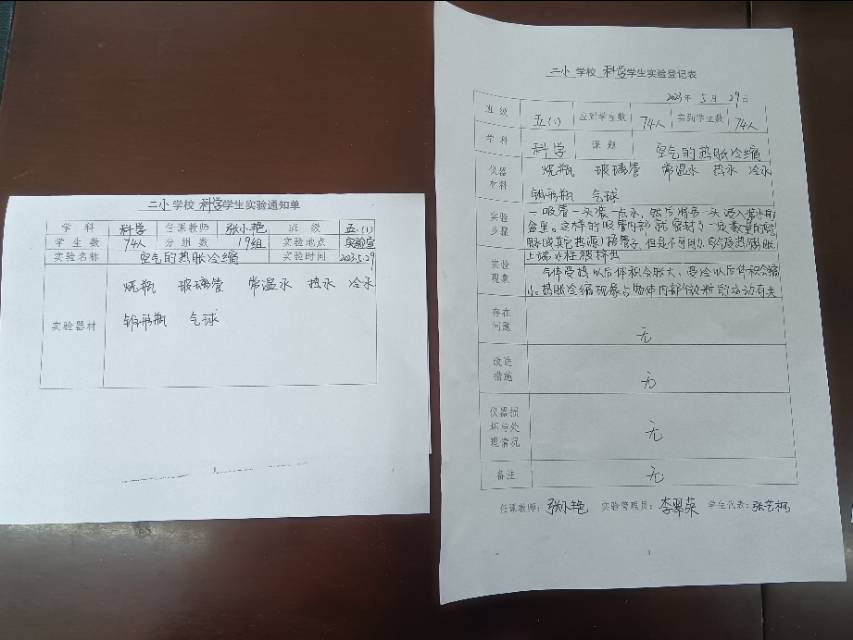 二小 学校 科学 学生实验通知单
学科 科学 任课教师 张小艳 班级 五(1)
学生数 74人 分组数 19组 实验地点 实验室
实验名称 空气的热胀冷缩 实验时间 2023.5.29
实验器材
烧瓶 玻璃管 常温水 热水 冷水
锥形瓶 气球
二小 学校 科学 学生实验登记表
2023年 5月 29日
班级 五(1) 应到学生数 74人 实到学生数 74人
学科 科学 课题 空气的热胀冷缩
仪器材料
烧瓶 玻璃管 常温水 热水 冷水
锥形瓶 气球
实验步骤
一吸管一头滚一点水,然后将另一头浸入
盒里。这样的吸管内部就密封了一定数量的
其它热源)接管子,但是不
上端水柱被
实验现象
气体受热以后体积会胀大、受冷以后体积会缩
小。热胀冷缩现象与物体内部微粒的运动有关
存在问题 无
改进措施 无
仪器损坏与处理情况 无
备注 无
任课教师:张小艳 实验管理员:李翠荣 学生代表:张艺